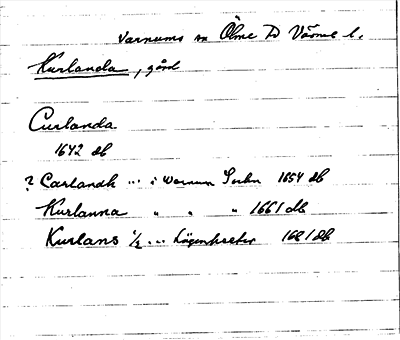 Varnums sn Ölme hd Värml l.
Kurlanda, gård
Curlanda
1642 db
? Carlandh ... i Warnum Sochn 1654 db
Kurlanna " " " 1661 db
Kurlans ½ ... Lägenheeter 1681 db